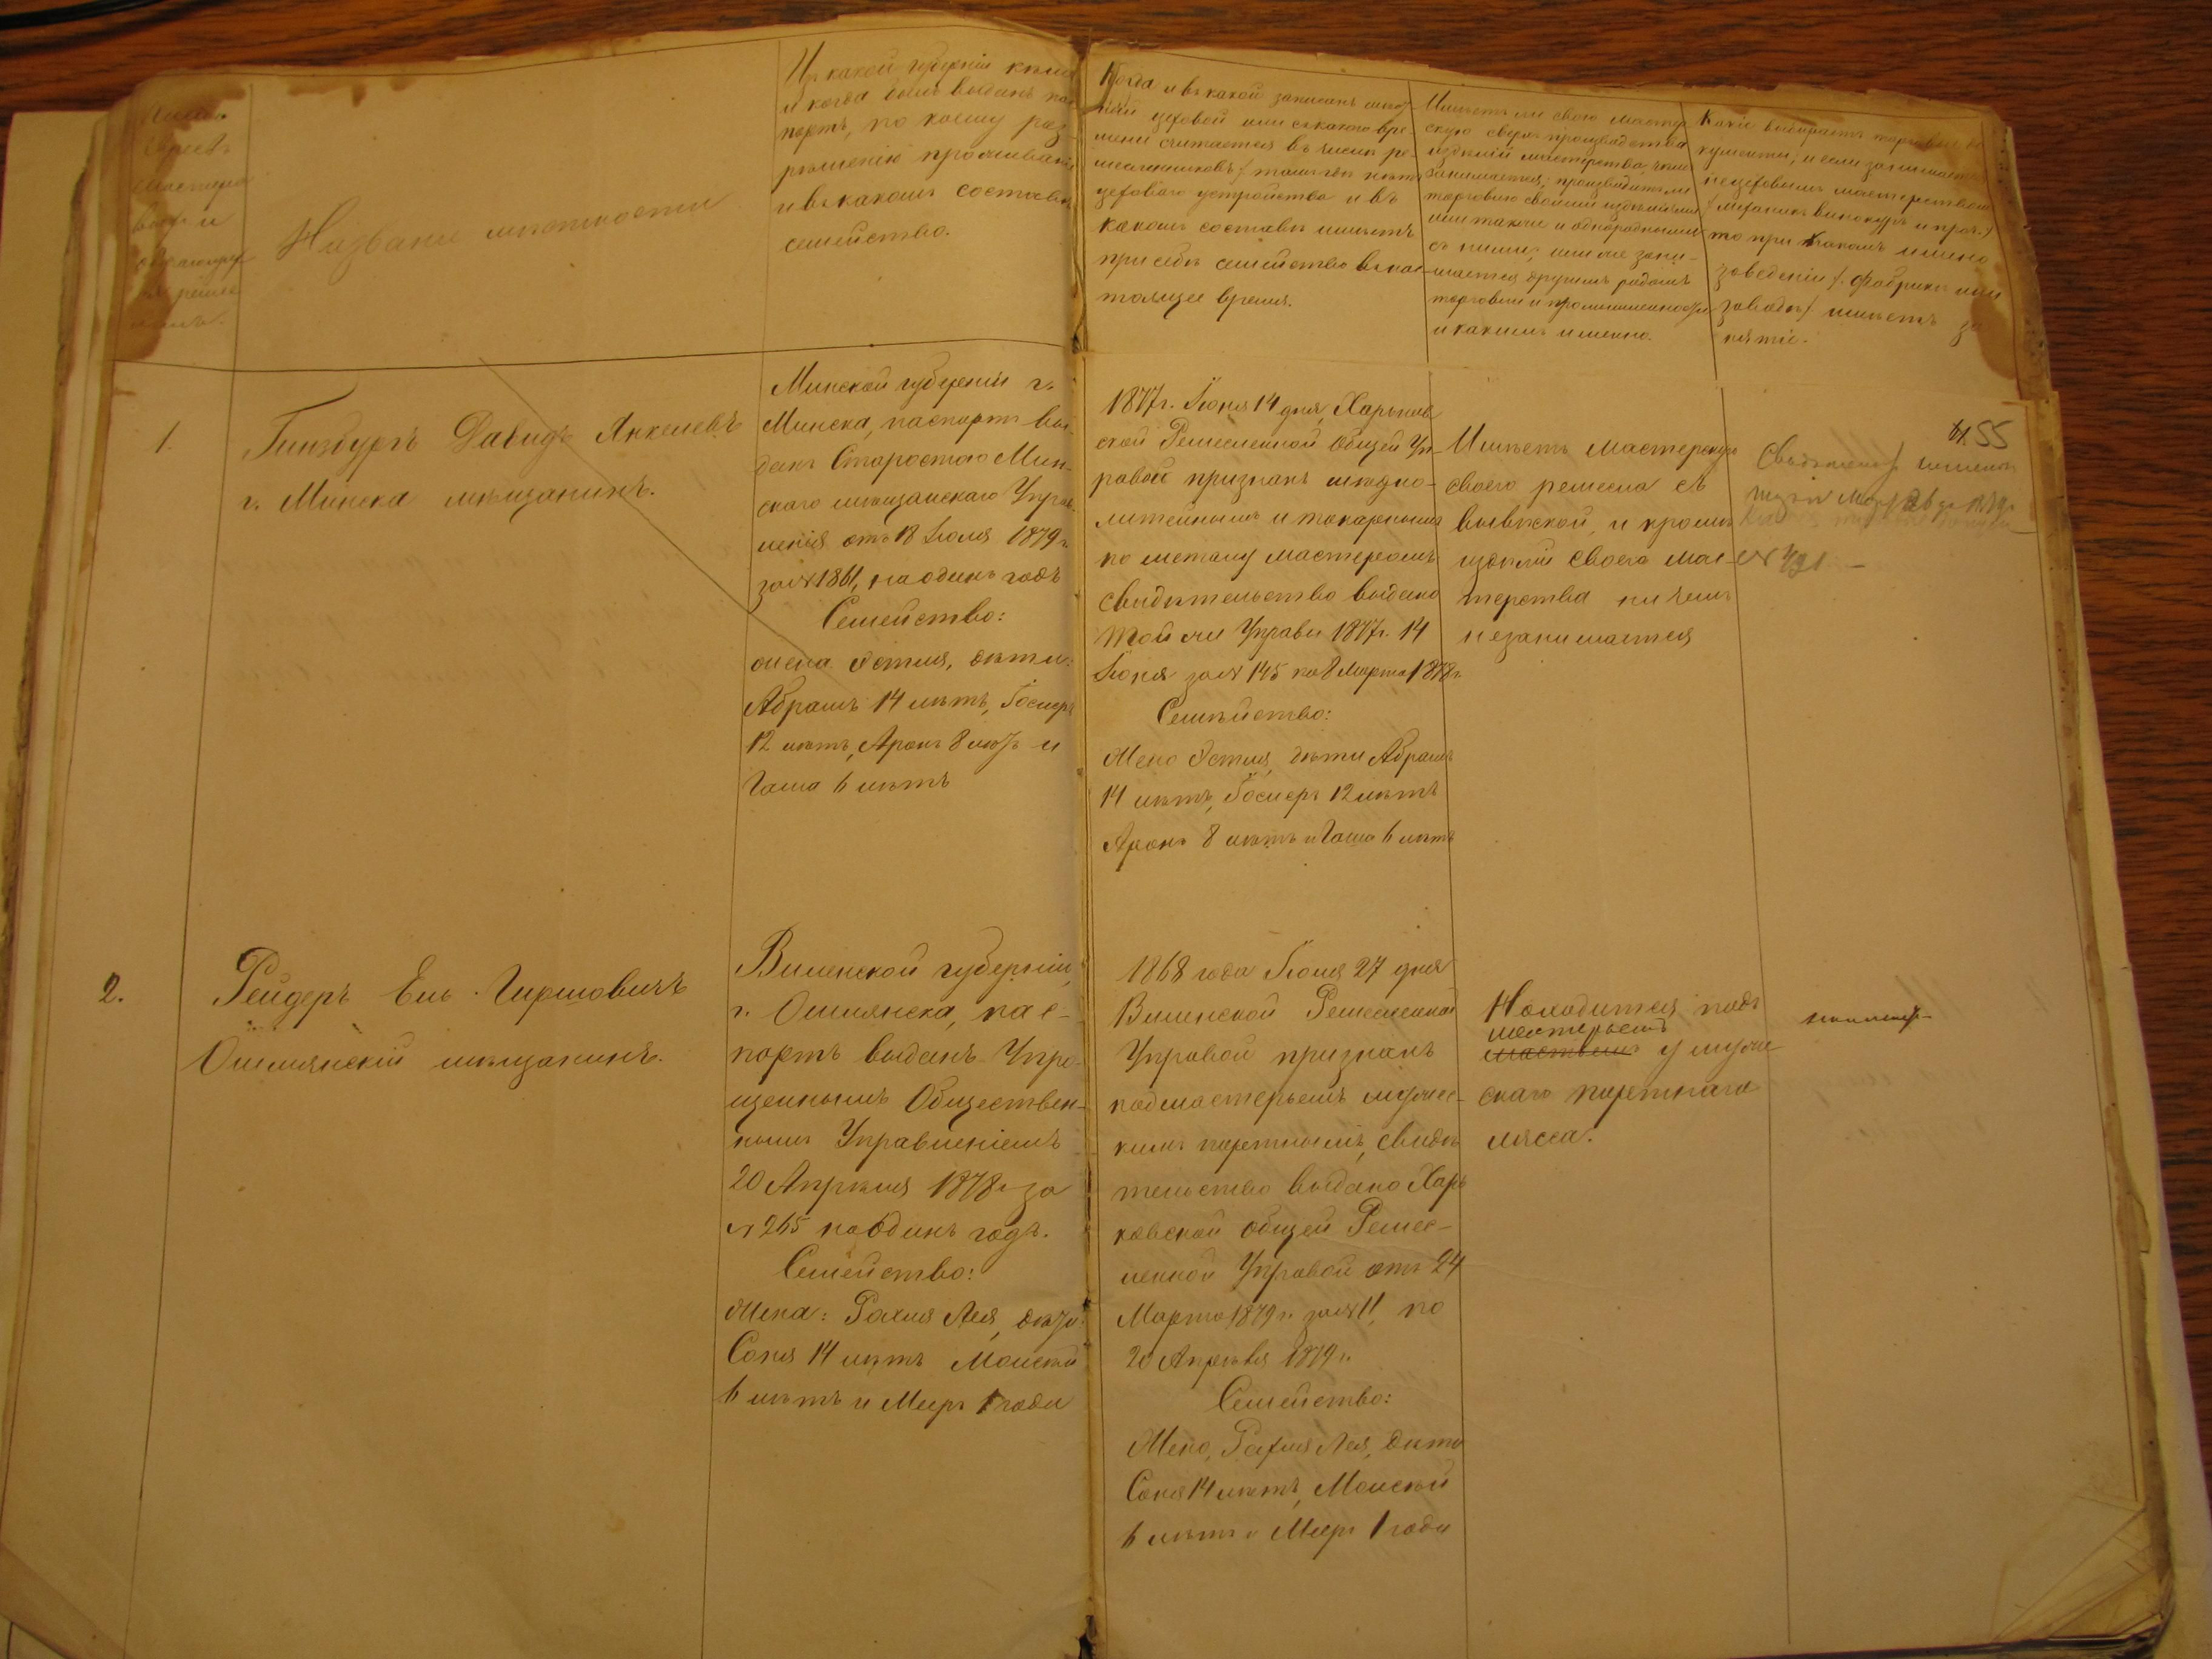 Название местности
Из какой губерніи кѣмъ
и когда былъ выданъ пас
портъ, по коему раз-
рѣшенію проживанія
и въ какомъ составѣ
семейство.
Когда и въ какой записанъ
цеховой или съ какого вре-
мени считается въ числѣ ре-
месленниковъ /тамъ гдѣ нѣтъ
цеховаго устройства и въ
какомъ составѣ имѣетъ
при себѣ семейство въ нас-
тоящее время.
Имѣетъ ли свою мастер
скую сверхъ производства
издѣлій мастерства, чѣмъ
занимается; производитъ ли
торговлю своими издѣліями
или также и однородными
съ ними, или же зани-
мается другимъ родомъ
торговли и промышленности
и какимъ именно.
Какіе выбираетъ торговые до
кументы, и если занимается
нецеховымъ мастерствомъ
/механикъ винокуръ и проч./
то при какомъ именно
заведеніи /. фабрикѣ или
заводѣ/ имѣетъ за
нятіе.
55
1.
Гинзбургъ Давидъ Янкелевъ
г. Минска мѣщанинъ.
Минской губерніи г.
Минска, паспортъ вы-
данъ Старостою Мин-
скаго мѣщанскаго Управ-
ленія отъ 18 Іюля 1879 г.
за № 1861, на одинъ годъ
Семейство:
жена Эстля, дѣти:
Абрамъ 14 лѣтъ, Іосперъ
12 лѣтъ, Аронъ 8 лѣтъ и
Гаша 6 лѣтъ
1877 г. Іюня 14 дня, Харьков
ской Ремесленной Общей Уп-
равой признанъ мѣдно-
литейнымъ и токарнымъ
по металу мастеромъ
свидѣтельство выдано
той же Управы 1877 г. 14
Іюня за № 145 по 8 Марта 1878 г.
Семѣйство:
Жена Эстля, дѣти Абрамъ
14 лѣтъ, Іосперъ 12 лѣтъ
Аронъ 8 лѣтъ и Гаша 6 лѣтъ
Имѣетъ мастерскую
своего ремесла съ
вывѣской, и кромѣ
издѣлій своего мас-
терства ни чемъ
незанимается
№ 421 -
2.
Рейдеръ Ель Гиршовичъ
Ошмянскій мѣщанинъ.
Виленской губерніи,
г. Ошмянска, пас-
портъ выданъ Упро-
щеннымъ Обществен-
нымъ Управленіемъ
20 Апрѣля 1878 г. за
№ 265 на одинъ годъ.
Семейство:
Жена: Рахля Лея, дѣти:
Соня 14 лѣтъ Моисѣй
6 лѣтъ и Мееръ 1 года
1868 года Іюля 27 дня
Виленской Ремесленной
Управой признанъ
подмастерьемъ мужес-
кимъ портнымъ, свидѣ
тельство выдано Харь
ковской общей Ремес-
ленной Управой отъ 24
Марта 1879 г. за № 11, по
20 Апрѣля 1879 г.
Семейство:
Жена, Рахля Лея, дѣти
Соня 14 лѣтъ, Моисѣй
6 лѣтъ и Меер 1 года
Находится под
мастерьемъ
у муже
скаго портнаго